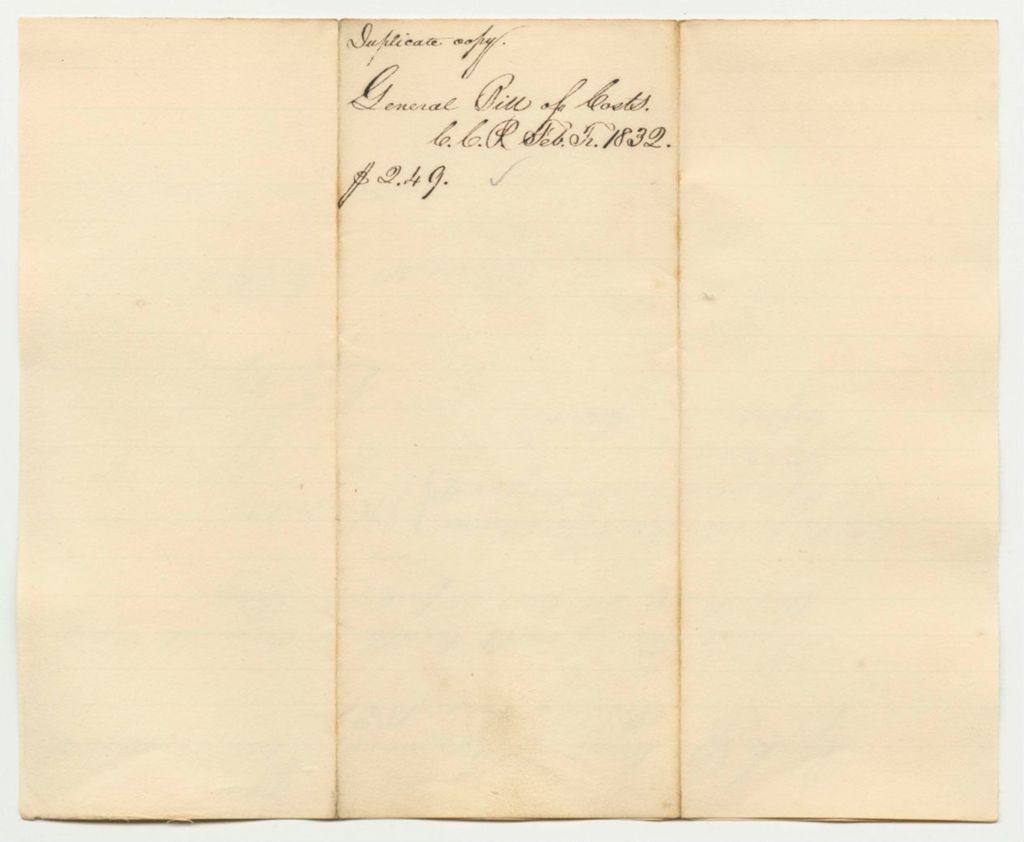 Duplicate copy.
General Bill of Costs.
C.C.P. Feb. Tr. 1832.
$ 2.49.